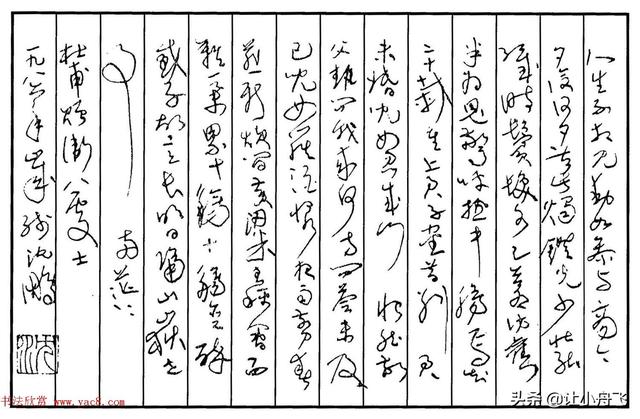 人生不相见动如参与商今
夕復何夕共此燭鐙光少壮能
几時鬢髮各已蒼訪舊
半为鬼驚呼热中腸焉知
二十載重上君子堂昔别君
未婚儿女忽成行怡然敬
父執问我来何方问答未及
已儿女羅酒漿夜雨剪春
韭新炊間黄粱主稱會面
難一举累十觴十觴亦不醉
感子故意长明日隔山岳世
事两茫茫
杜甫贈衛八处士
一九八六年岁残沈鹏
沈
书法欣赏 www.yac8.com
头条 @让小舟飞